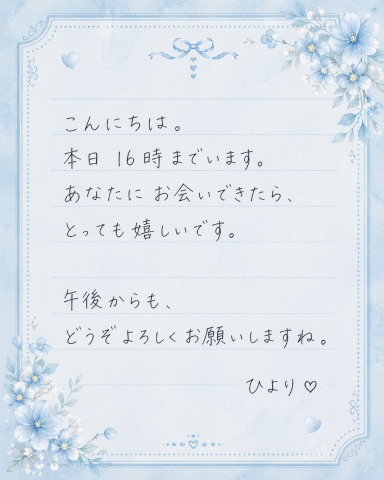 こんにちは。
本日 16時までいます。
あなたに お会いできたら、
とっても嬉しいです。
午後からも、
どうぞよろしくお願いしますね。
ひより♡